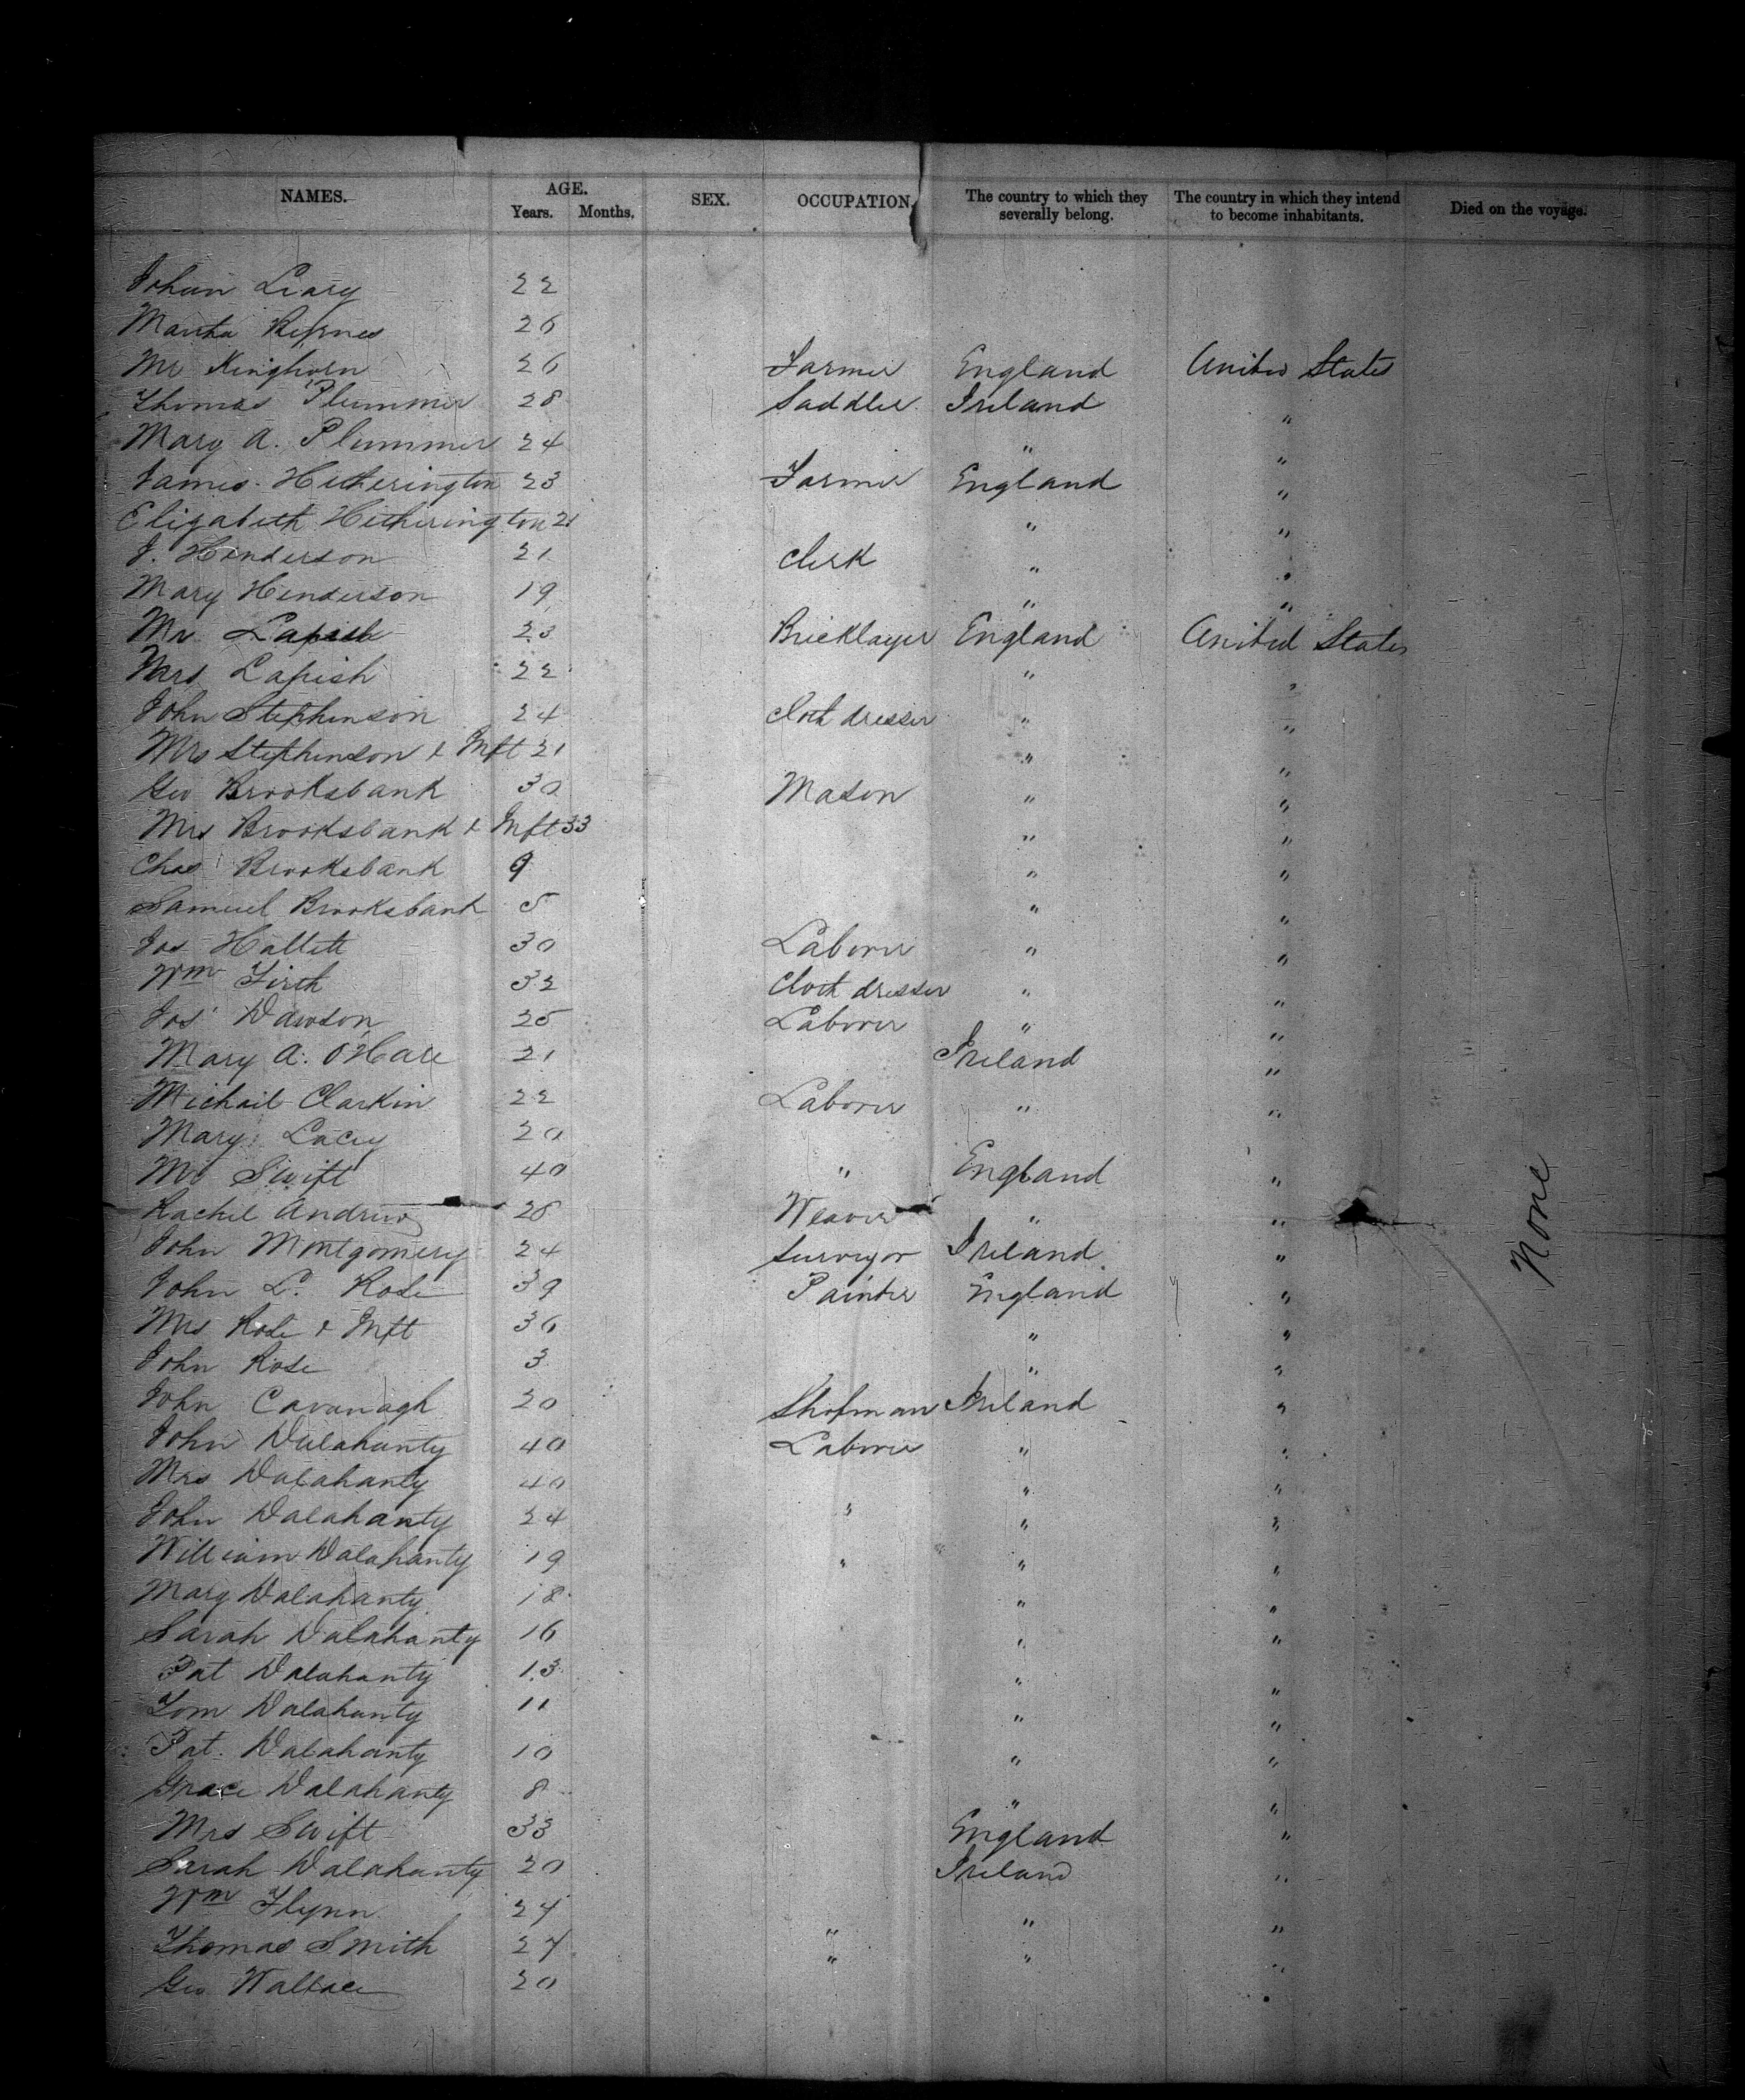 NAMES. AGE. SEX. OCCUPATION. The country to which they severally belong. The country in which they intend to become inhabitants. Died on the voyage.
Years. Months.
Leary 22
26
Mr Kinghorn 26 Farmer England United States
Thomas Plummer 28 Saddler Ireland "
Mary A. Plummer 24 " "
James Hetherington 23 Farmer England "
Elizabeth Hetherington 21 " "
J. Henderson 21 Clerk " "
Mary Henderson 19 " "
Mr Lapish 23 Bricklayer England United States
Mrs Lapish 22 " "
John Stephinson 24 Cloth dresser " "
Mrs Stephinson & Inft 21 " "
Geo Brooksbank 30 Mason " "
Mrs Brooksbank & Inft 33 " "
Chas Brooksbank 9 " "
Samuel Brooksbank 5 " "
Jos Hallett 30 Laborer " "
Wm Firth 32 Cloth dresser " "
Jos Dawson 25 Laborer " "
Mary A. O'Hare 21 Ireland "
Michail Clarkin 22 Laborer " "
Mary Lacey 20
Mr Swift 40 " England "
Rachel Andrew 28 Weaver " "
John Montgomery 24 Surveyor Ireland "
John L. Rose 39 Painter England "
Mrs Rose & Inft 36 " "
John Rose 3 " "
John Cavanagh 20 Shopman Ireland "
John Dalahanty 40 Laborer " "
Mrs Dalahanty 40 " "
John Dalahanty 24 " " "
William Dalahanty 19 " " "
Mary Dalahanty 18 " "
Sarah Dalahanty 16 " "
Pat Dalahanty 13 " "
Tom Dalahanty 11 " "
Pat. Dalahanty 10 " "
Grace Dalahanty 8 " "
Mrs Swift 33 England "
Sarah Dalahanty 20 Ireland "
Wm Flynn 24 " " "
Thomas Smith 27 " " "
Geo Wallace 20
None